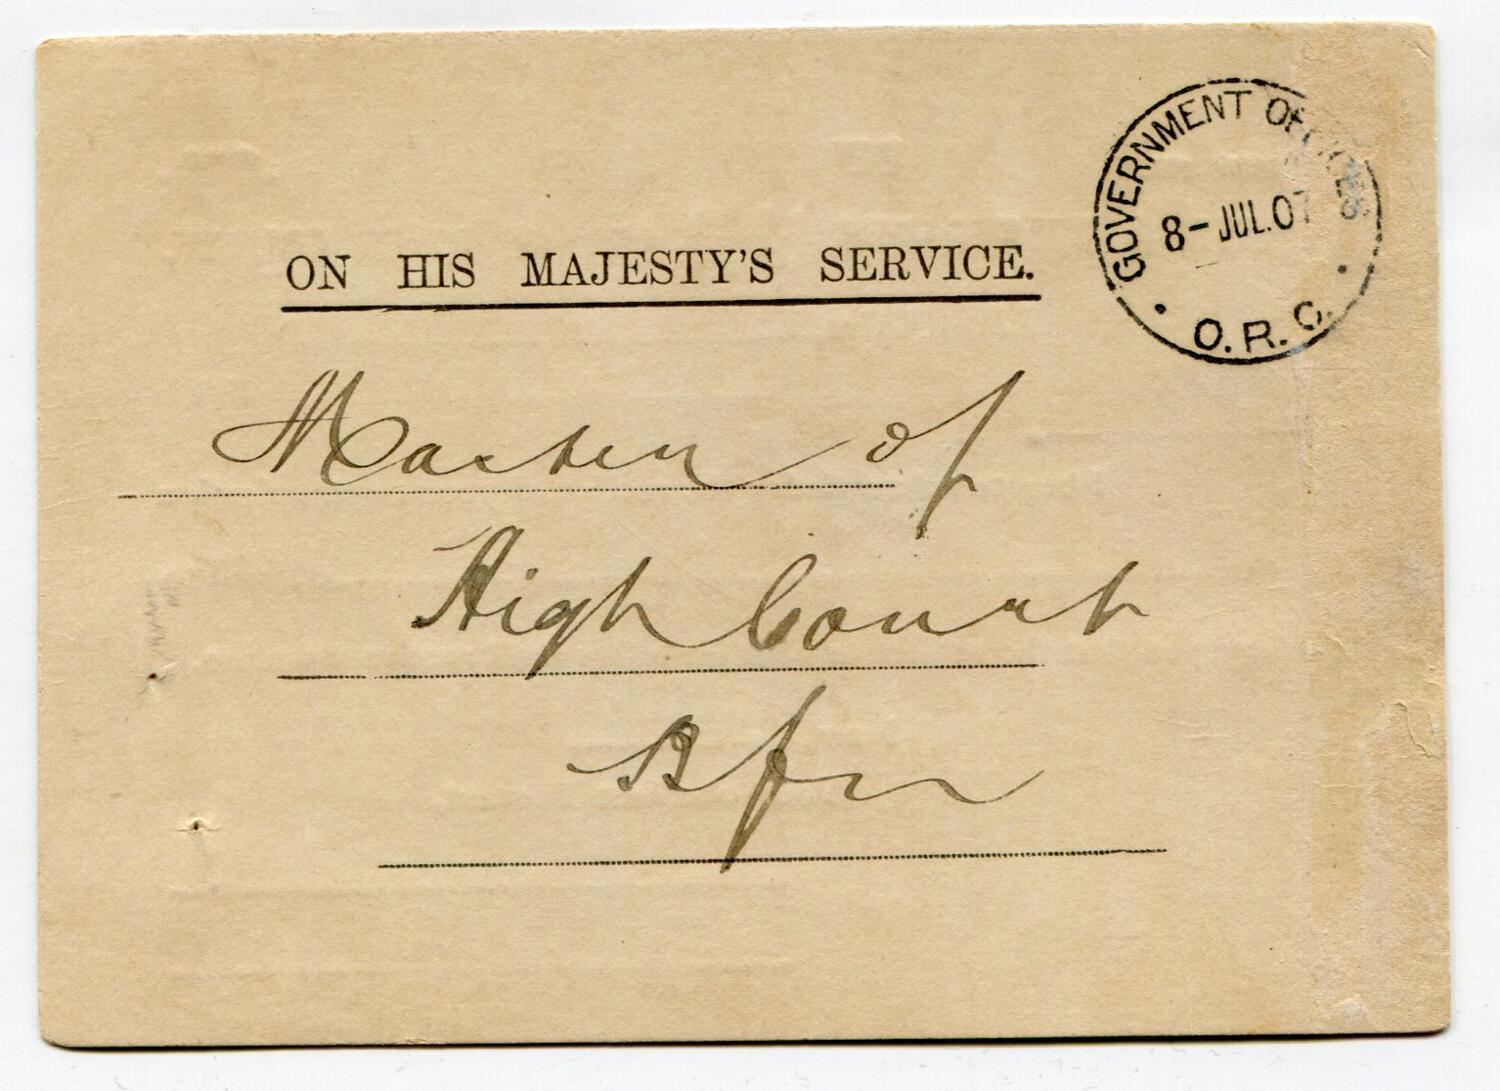 GOVERNMENT OFFICES
8- JUL.07
O.R.C.
ON HIS MAJESTY'S SERVICE.
Master of
High Court
Bfn